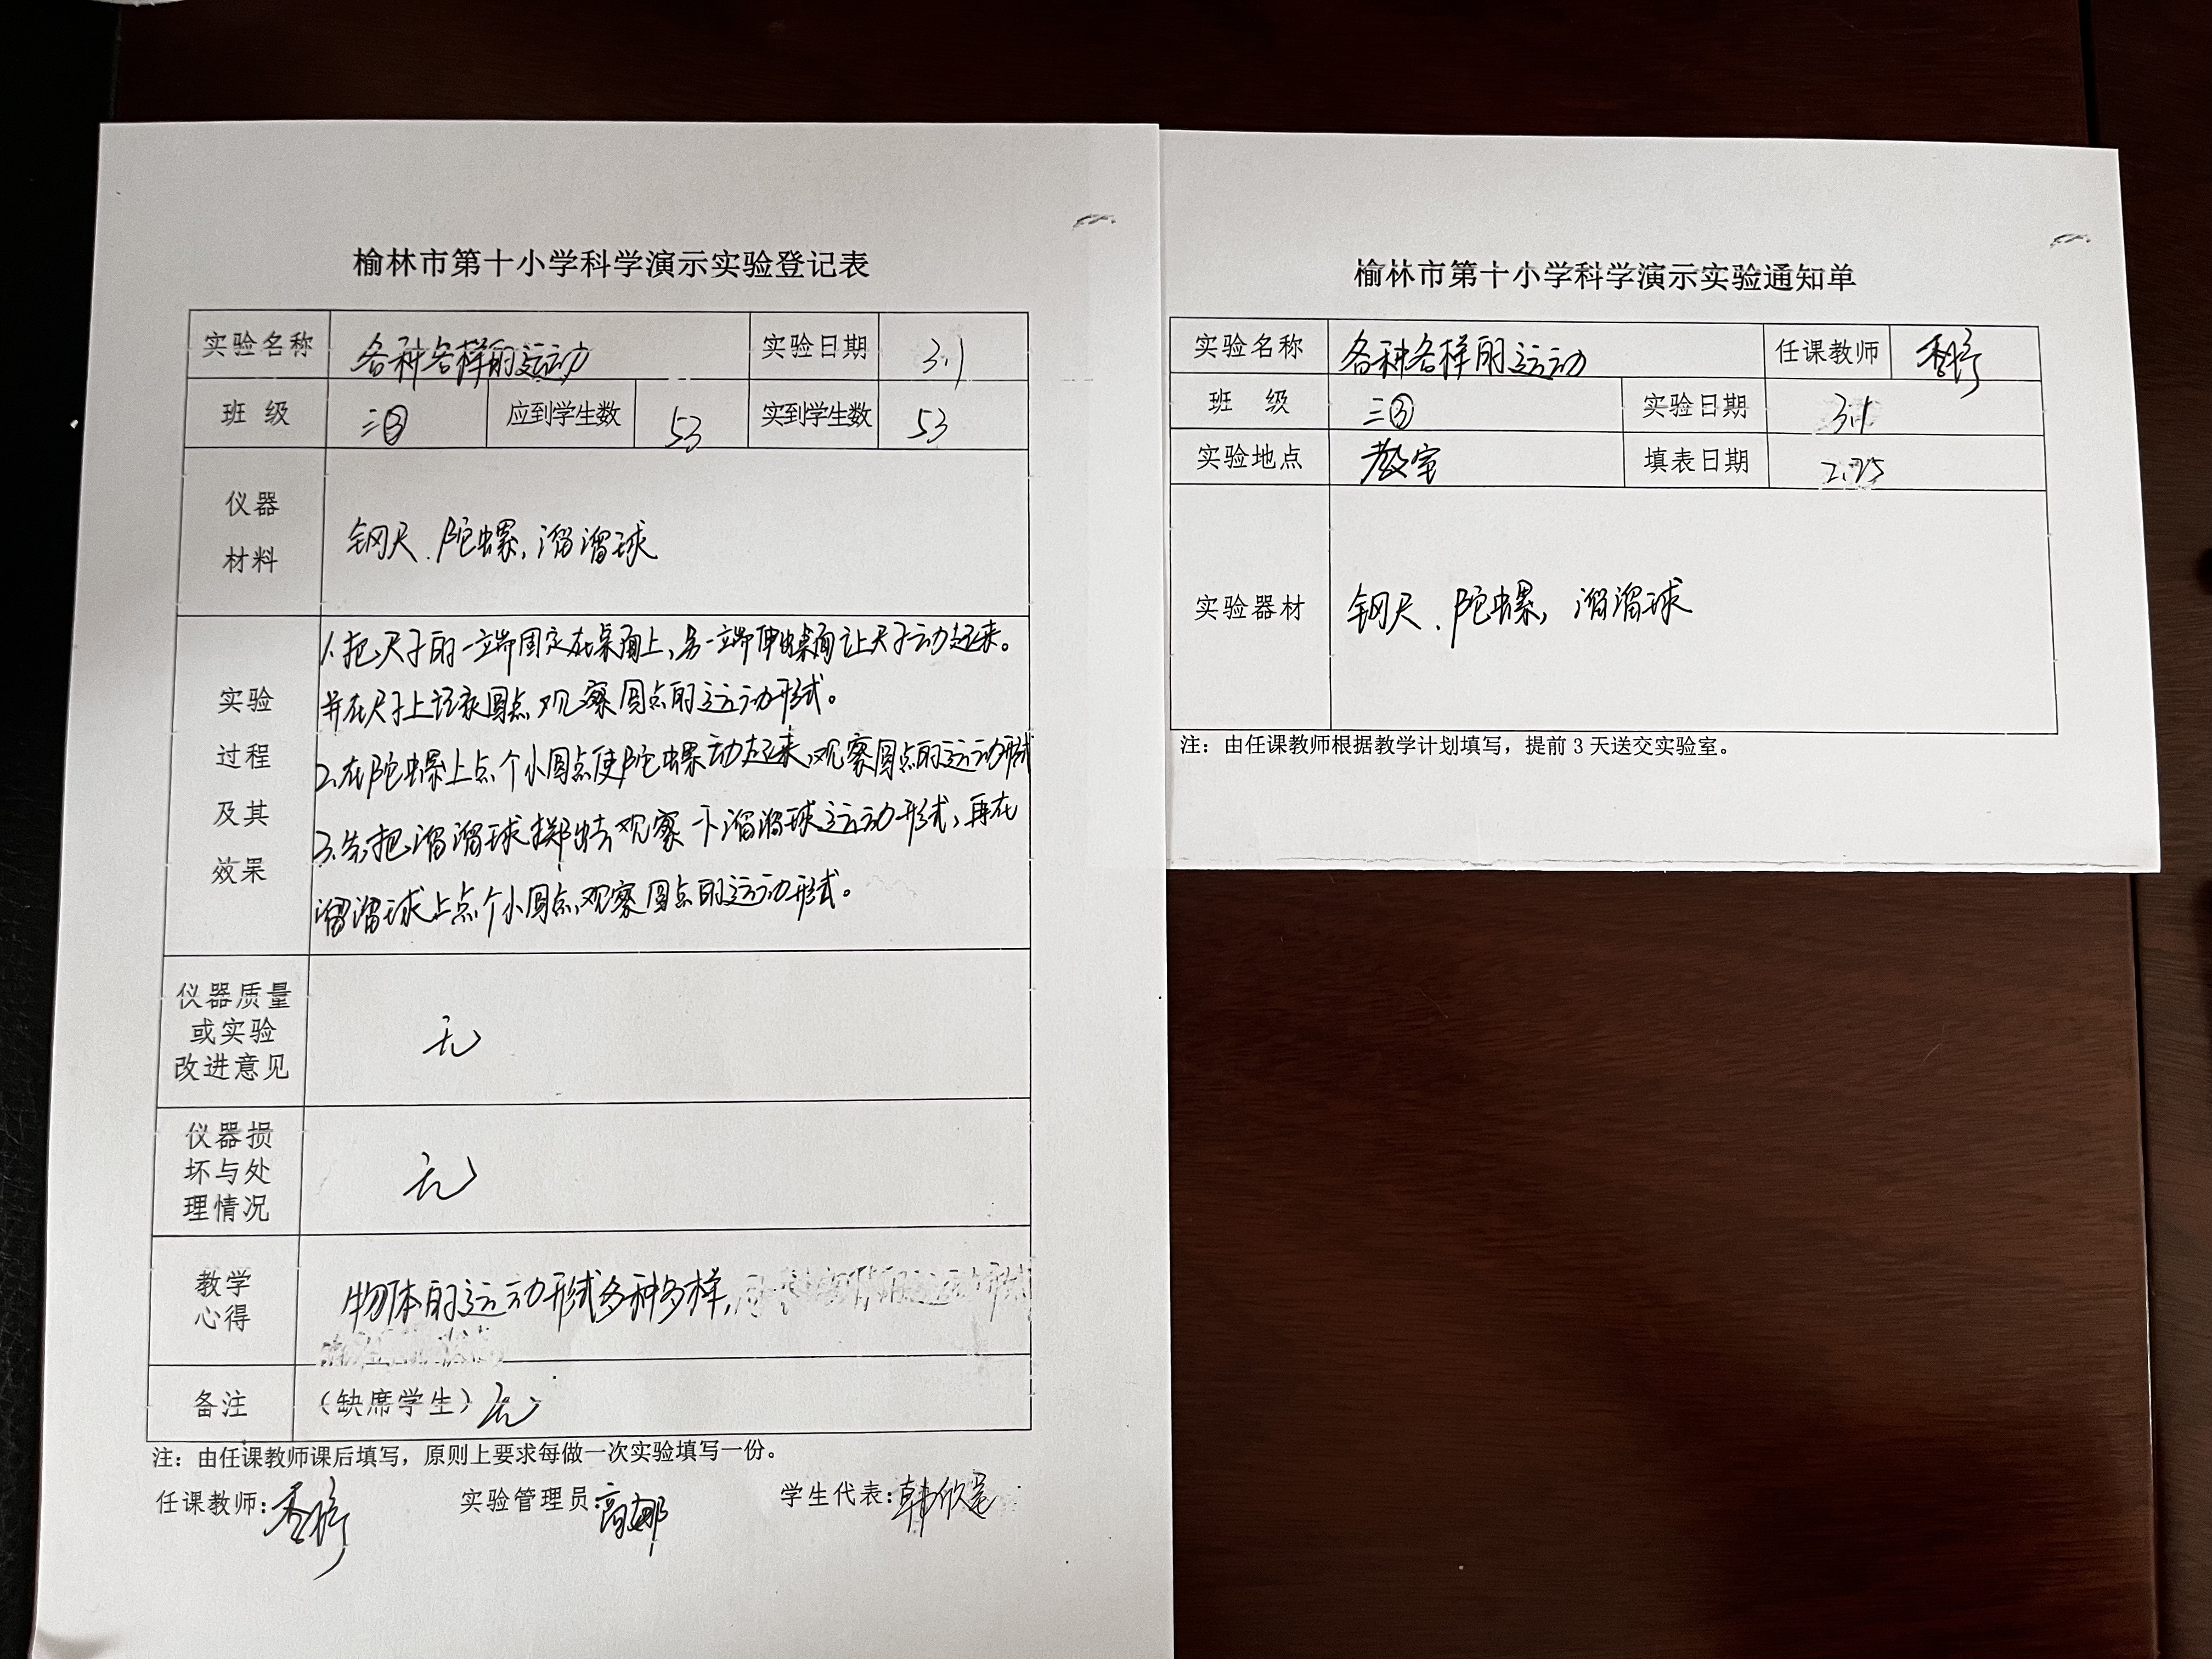 榆林市第十小学科学演示实验登记表
实验名称 各种各样的运动 实验日期 3.1
班 级 三③ 应到学生数 53 实到学生数 53
仪器
材料
钢尺、陀螺,溜溜球
实验
过程
及其
效果
1.把尺子的一端固定在桌面上,另一端伸出桌面让尺子动起来。
并在尺子上记录圆点,观察圆点的运动形式。
2.在陀螺上点个小圆点使陀螺动起来,观察圆点的运动形式
3.先把溜溜球掷出去观察一下溜溜球运动形式,再在
溜溜球上点个小圆点,观察圆点的运动形式。
仪器质量
或实验
改进意见
无
仪器损
坏与处
理情况
无
教学
心得
物体的运动形式多种多样,
备注 (缺席学生) 无
注:由任课教师课后填写,原则上要求每做一次实验填写一份。
任课教师: 实验管理员:高娜 学生代表:韩欣
榆林市第十小学科学演示实验通知单
实验名称 各种各样的运动 任课教师
班 级 三③ 实验日期 3.1
实验地点 教室 填表日期 2.25
实验器材 钢尺、陀螺,溜溜球
注:由任课教师根据教学计划填写,提前 3 天送交实验室。